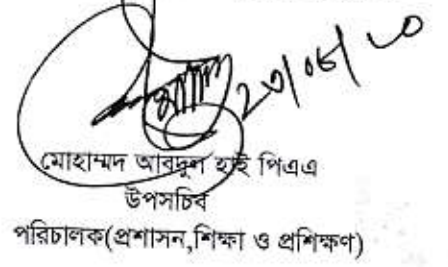 মোহাম্মদ আবদুল হাই পিএএ
উপসচিব
পরিচালক(প্রশাসন,শিক্ষা ও প্রশিক্ষণ)